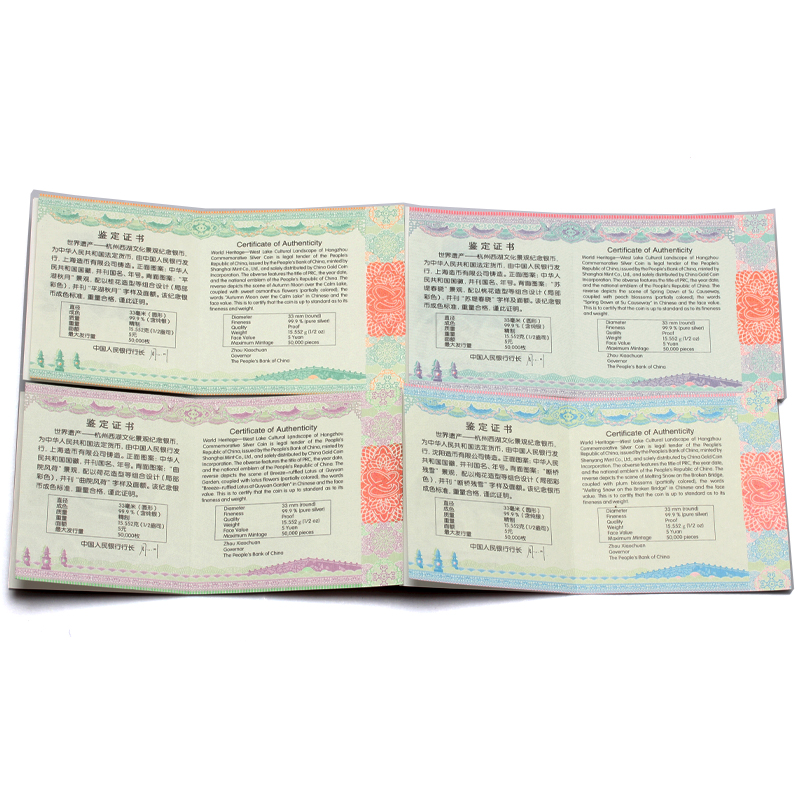 鉴定证书
世界遗产——杭州西湖文化景观纪念银币，
为中华人民共和国法定货币，由中国人民银行发
行，上海造币有限公司铸造。正面图案：中华人
民共和国国徽，并刊国名、年号。背面图案：“平
湖秋月”景观，配以桂花造型等组合设计（局部
彩色），并刊“平湖秋月”字样及面额。该纪念银
币成色标准，重量合格，谨此证明。
直径 33毫米（圆形）
成色 99.9％（含纯银）
质量 精制
重量 15.552克(1/2盎司)
面额 5元
最大发行量 50,000枚
中国人民银行行长
Certificate of Authenticity
World Heritage—West Lake Cultural Landscape of Hangzhou
Commemorative Silver Coin is legal tender of the People's
Republic of China, issued by the People's Bank of China, minted by
Shanghai Mint Co., Ltd., and solely distributed by China Gold Coin
Incorporation. The obverse features the title of PRC, the year date,
and the national emblem of the People's Republic of China. The
reverse depicts the scene of Autumn Moon over the Calm Lake,
coupled with sweet osmanthus flowers (partially colored), the
words "Autumn Moon over the Calm Lake" in Chinese and the
face value. This is to certify that the coin is up to standard as to its
fineness and weight.
Diameter 33 mm (round)
Fineness 99.9 % (pure silver)
Quality Proof
Weight 15.552 g (1/2 oz)
Face Value 5 Yuan
Maximum Mintage 50,000 pieces
Zhou Xiaochuan
Governor
The People's Bank of China
鉴定证书
世界遗产——杭州西湖文化景观纪念银币，
为中华人民共和国法定货币，由中国人民银行发
行，上海造币有限公司铸造。正面图案：中华人
民共和国国徽，并刊国名、年号。背面图案：“苏
堤春晓”景观，配以桃花造型等组合设计（局部
彩色），并刊“苏堤春晓”字样及面额。该纪念银
币成色标准，重量合格，谨此证明。
直径 33毫米（圆形）
成色 99.9％（含纯银）
质量 精制
重量 15.552克(1/2盎司)
面额 5元
最大发行量 50,000枚
中国人民银行行长
Certificate of Authenticity
World Heritage—West Lake Cultural Landscape of Hangzhou
Commemorative Silver Coin is legal tender of the People's
Republic of China, issued by the People's Bank of China, minted by
Shanghai Mint Co., Ltd., and solely distributed by China Gold Coin
Incorporation. The obverse features the title of PRC, the year date,
and the national emblem of the People's Republic of China. The
reverse depicts the scene of Spring Dawn of Su Causeway,
coupled with peach blossoms (partially colored), the words
"Spring Dawn of Su Causeway" in Chinese and the face value.
This is to certify that the coin is up to standard as to its fineness
and weight.
Diameter 33 mm (round)
Fineness 99.9 % (pure silver)
Quality Proof
Weight 15.552 g (1/2 oz)
Face Value 5 Yuan
Maximum Mintage 50,000 pieces
Zhou Xiaochuan
Governor
The People's Bank of China
鉴定证书
世界遗产——杭州西湖文化景观纪念银币，
为中华人民共和国法定货币，由中国人民银行发
行，上海造币有限公司铸造。正面图案：中华人
民共和国国徽，并刊国名、年号。背面图案：“曲
院风荷”景观，配以荷花造型等组合设计（局部
彩色），并刊“曲院风荷”字样及面额。该纪念银
币成色标准，重量合格，谨此证明。
直径 33毫米（圆形）
成色 99.9％（含纯银）
质量 精制
重量 15.552克(1/2盎司)
面额 5元
最大发行量 50,000枚
中国人民银行行长
Certificate of Authenticity
World Heritage—West Lake Cultural Landscape of Hangzhou
Commemorative Silver Coin is legal tender of the People's
Republic of China, issued by the People's Bank of China, minted by
Shanghai Mint Co., Ltd., and solely distributed by China Gold Coin
Incorporation. The obverse features the title of PRC, the year date,
and the national emblem of the People's Republic of China. The
reverse depicts the scene of Breeze-ruffled Lotus of Quyuan
Garden, coupled with lotus flowers (partially colored), the words
"Breeze-ruffled Lotus at Quyuan Garden" in Chinese and the face
value. This is to certify that the coin is up to standard as to its
fineness and weight.
Diameter 33 mm (round)
Fineness 99.9 % (pure silver)
Quality Proof
Weight 15.552 g (1/2 oz)
Face Value 5 Yuan
Maximum Mintage 50,000 pieces
Zhou Xiaochuan
Governor
The People's Bank of China
鉴定证书
世界遗产——杭州西湖文化景观纪念银币，
为中华人民共和国法定货币，由中国人民银行发
行，沈阳造币有限公司铸造。正面图案：中华人
民共和国国徽，并刊国名、年号。背面图案：“断桥
残雪”景观，配以梅花造型等组合设计（局部彩
色），并刊“断桥残雪”字样及面额。该纪念银币
成色标准，重量合格，谨此证明。
直径 33毫米（圆形）
成色 99.9％（含纯银）
质量 精制
重量 15.552克(1/2盎司)
面额 5元
最大发行量 50,000枚
中国人民银行行长
Certificate of Authenticity
World Heritage—West Lake Cultural Landscape of Hangzhou
Commemorative Silver Coin is legal tender of the People's
Republic of China, issued by the People's Bank of China, minted by
Shenyang Mint Co., Ltd., and solely distributed by China Gold Coin
Incorporation. The obverse features the title of PRC, the year date,
and the national emblem of the People's Republic of China. The
reverse depicts the scene of Melting Snow on the Broken Bridge,
coupled with plum blossoms (partially colored), the words
"Melting Snow on the Broken Bridge" in Chinese and the face
value. This is to certify that the coin is up to standard as to its
fineness and weight.
Diameter 33 mm (round)
Fineness 99.9 % (pure silver)
Quality Proof
Weight 15.552 g (1/2 oz)
Face Value 5 Yuan
Maximum Mintage 50,000 pieces
Zhou Xiaochuan
Governor
The People's Bank of China